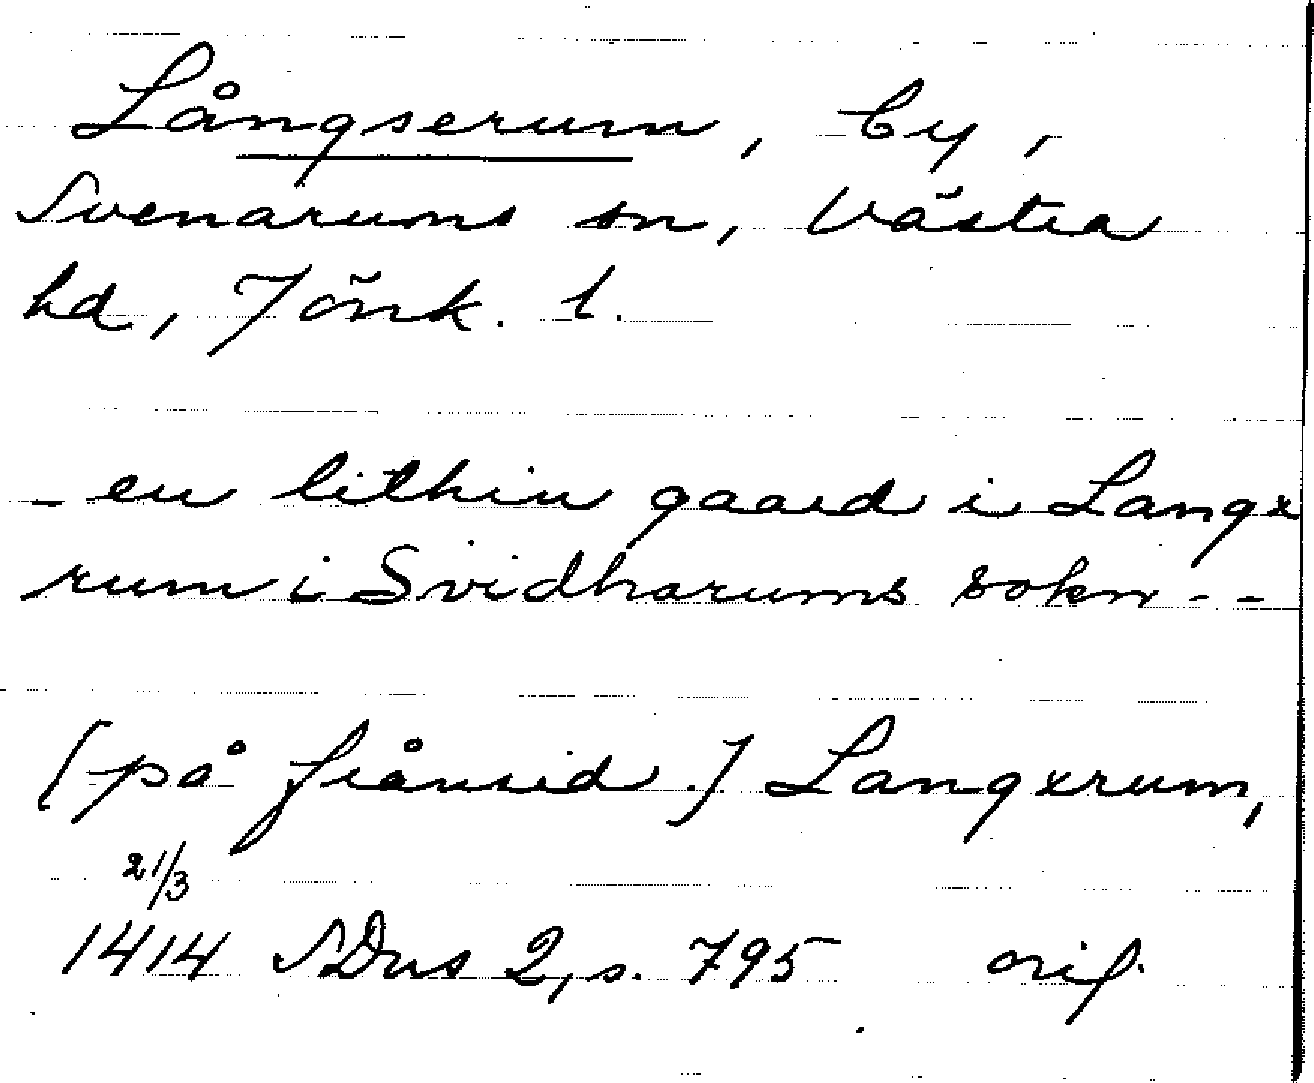 Långserum, by,
Svenarums sn, Västra
hd, Jönk. l.
- en lithin gaard i Langx
rum i Svidharums sokn - -
[på frånsid.] Langxrum,
21/3
1414 SDns 2, s. 795 orig.